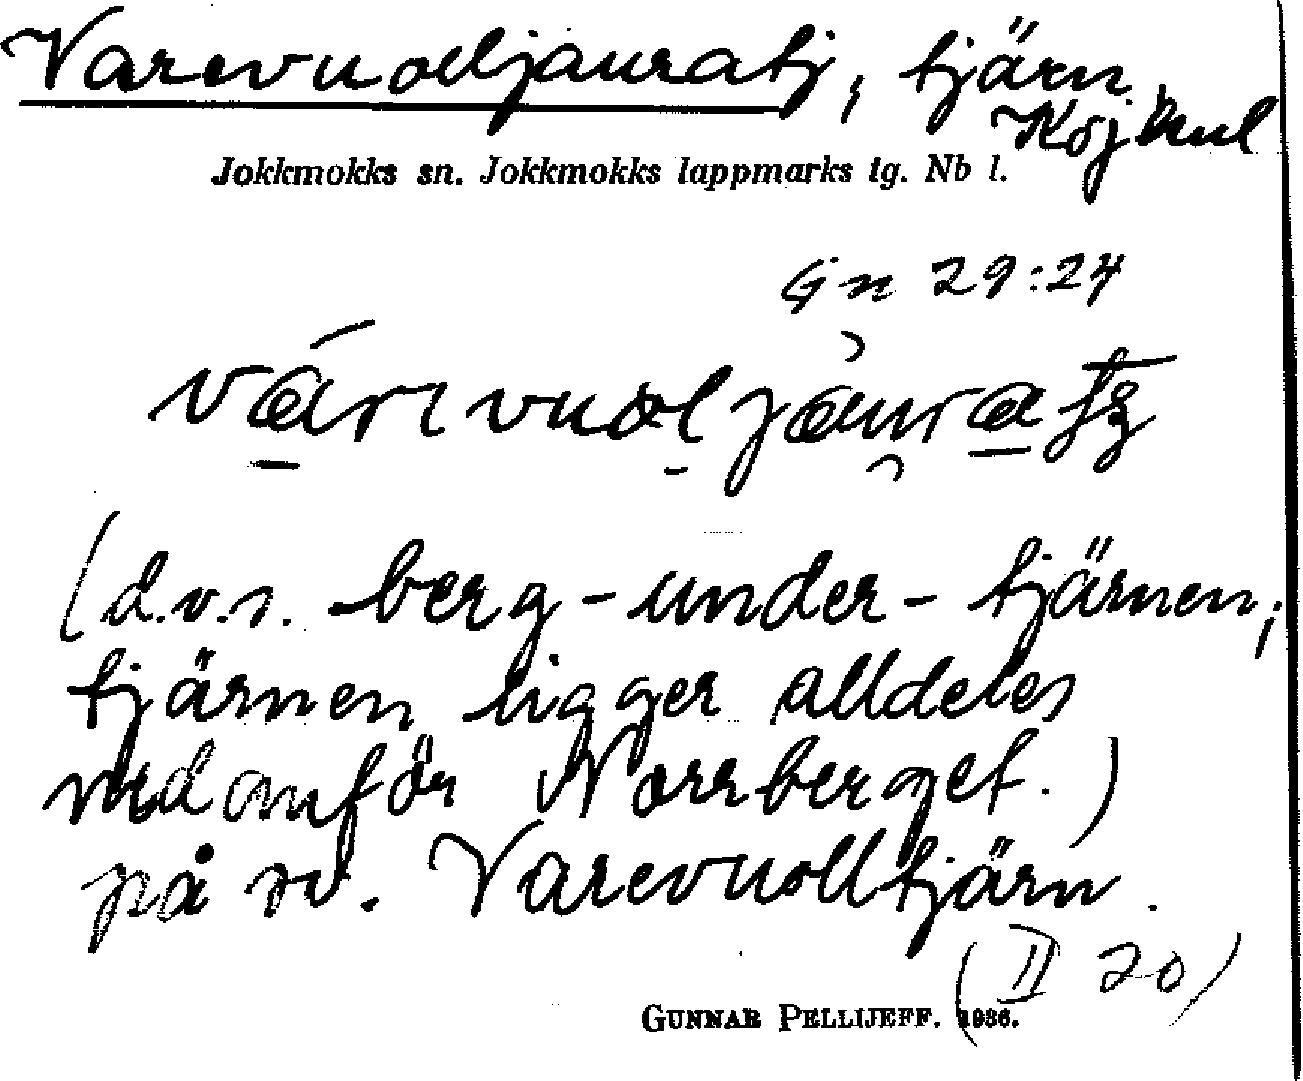 Varevuolljauratj, tjärn,
Kojkul
Jokkmokks sn. Jokkmokks lappmarks tg. Nb l.
Gn 29:24
(d.v.s. berg-under-tjärnen;
tjärnen ligger alldeles
nedanför Norrberget.)
på sv. Varevuolltjärn.
(II 20)
GUNNAR PELLIJEFF. 1936.